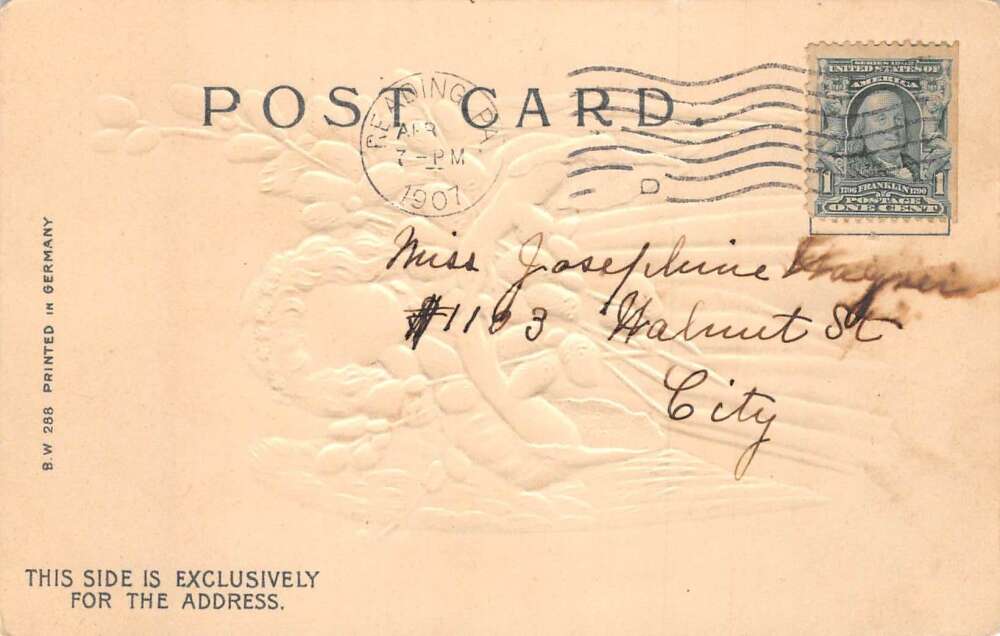 POST CARD.
READING, PA.
APR
7-PM
1907
D
SERIES 1902
UNITED STATES OF
AMERICA
1706 FRANKLIN 1790
1 POSTAGE 1
ONE CENT
Miss Josephine
#1193 Walnut St
City
B.W 288 PRINTED IN GERMANY
THIS SIDE IS EXCLUSIVELY
FOR THE ADDRESS.